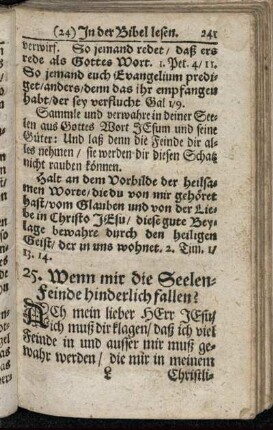 (24) In der Bibel lesen. 241
verwirf. So jemand redet / daß ers
rede als Gottes Wort. 1. Pet. 4/11.
So jemand euch Evangelium predi-
get/anders/denn das ihr empfangen
habt/der sey verflucht Gal 1/9.
Sammle und verwahre in deiner See-
len aus Gottes Wort JEsum und seine
Güter: Und laß denn die Feinde dir al-
les nehmen / sie werden dir diesen Schatz
nicht rauben können.
Halt an dem Vorbilde der heilsa-
men Worte/die du von mir gehöret
hast/vom Glauben und von der Lie-
be in Christo JEsu / diese gute Bey-
lage bewahre durch den heiligen
Geist/ der in uns wohnet. 2. Tim. 1/
13. 14.
25. Wenn mir die Seelen-
Feinde hinderlich fallen?
ACh mein lieber HErr JEsu/
ich muß dir klagen/daß ich viel
Feinde in und ausser mir muß ge-
wahr werden / die mir in meinem
L Christli-